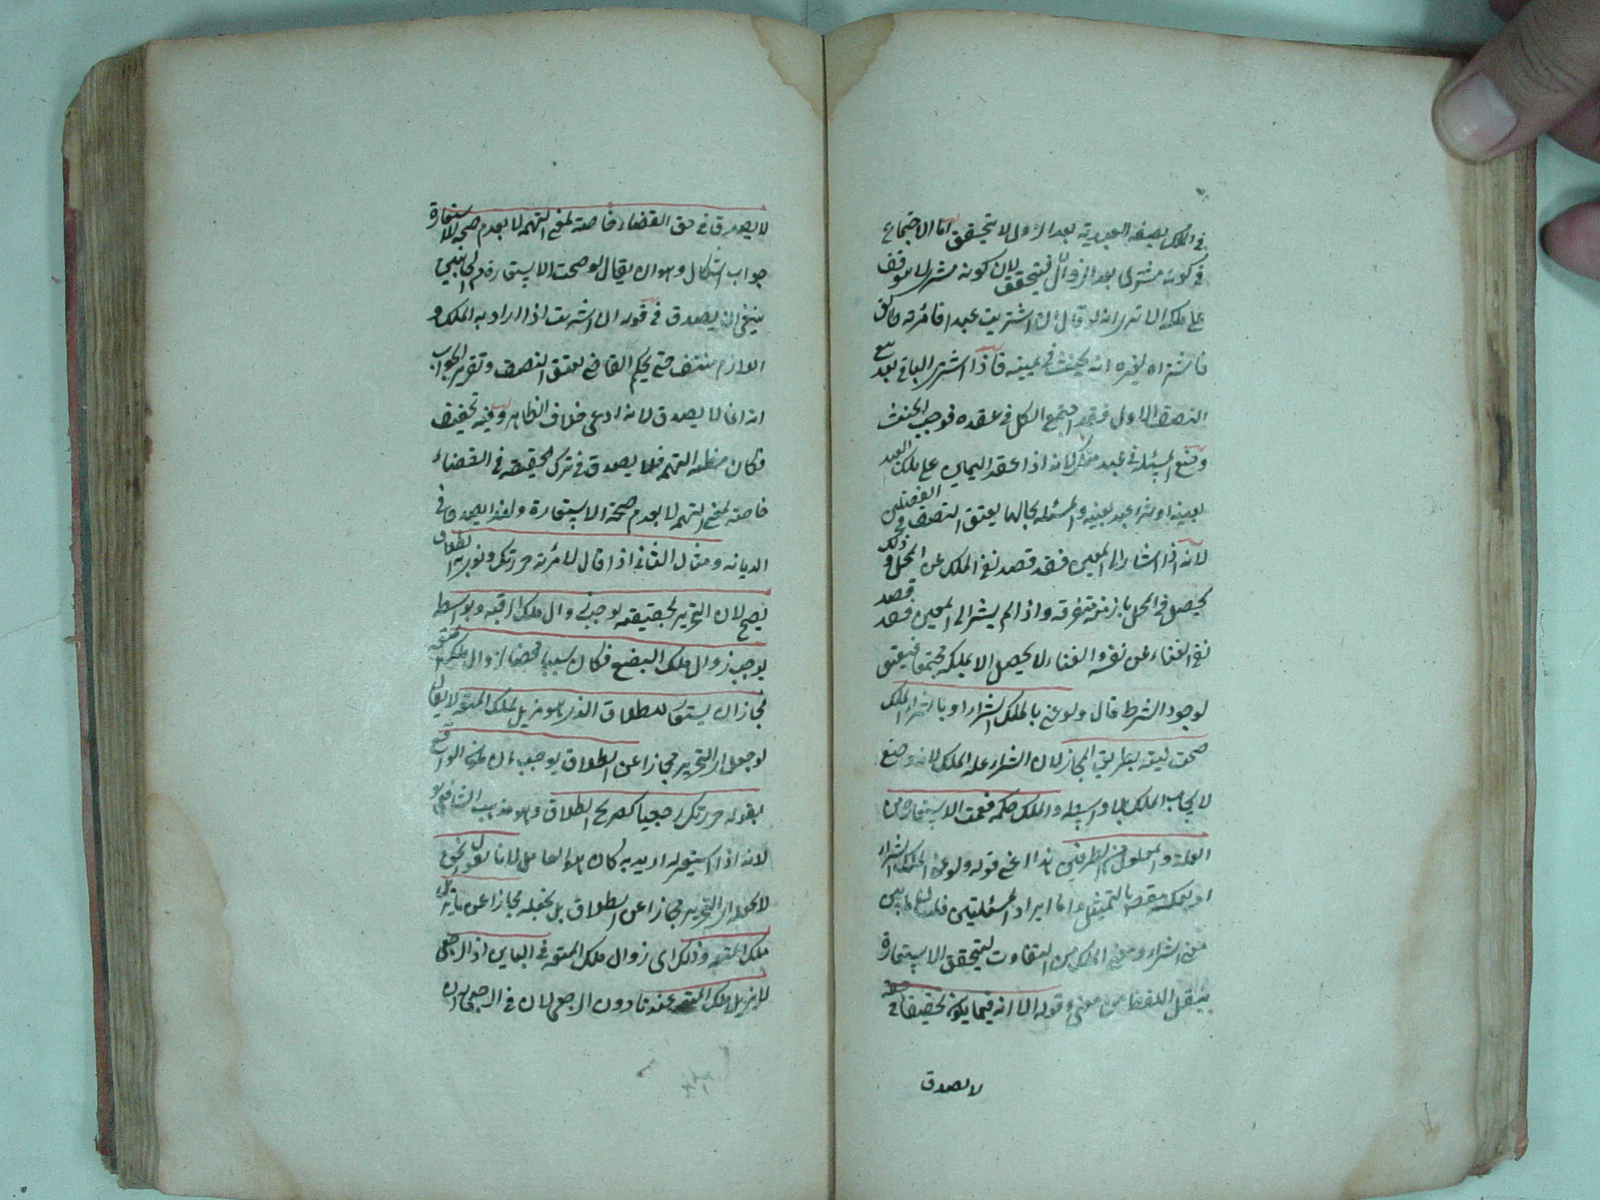 في الملك بصفة العبدية بعد الزوال لا يتحقق اما الاجتماع
في كونه مشترى بعد الزوال فيتحقق لان كونه مشترى لا يتوقف
على ملكه الا ترى انه لو قال ان اشتريت عبدا فامرته طالق
فاشتراه لغيره انه يحنث في يمينه فاذا اشترى الباقي بعد بيع
النصف الاول فقد اجتمع الكل في عقده فوجب الحنث
وضع المسئلة في عبد منكر لانه اذا عقد اليمين على ملك العبد
بعينه او شراء عبد بعينه والمسئلة بحالها يعتق النصف في الفصلين
لانه اذا اشار الى المعين فقد قصد نفي الملك عن المحل وذلك
يحصل في المحل بازمنة متفرقة واذا لم يشر الى المعين فقد قصد
نفي الغناء عن نفسه والغناء لا يحصل الا بملكه مجتمعا فيعتق
لوجود الشرط قال ولو عنى بالملك الشراء او بالشراء الملك
صحت نيته بطريق المجاز لان الشراء علة الملك لانه وضع
لايجاب الملك بلا واسطة والملك حكمه فعمت الاستعارة من
العلة والمعلول من الطرفين هذا اعني قوله ولو عنى بالملك الشراء
او بعكسه مقصد بالتمثيل واما ايراد المسئلتين فلما بين
معنى الشراء ومعنى الملك من التفاوت ليتحقق الاستعارة
بنقل اللفظ من معنى وقوله الا انه فيما يكون تخفيفا في حقه
لا يصدق
لا يصدق في حق القضاء خاصة لمعنى التهمة لا بعدم صحة الاستعارة
جواب اشكال وهو ان يقال لو صحت الاستعارة من الجانبين
ينبغي ان يصدق في قوله ان اشتريت اذا اراد به الملك و
اللازم منتف حتى يحكم القاضي بعتق النصف وتقرير الجواب
انه انما لا يصدق لانه ادعى خلاف الظاهر وفيه تخفيف
فكان مظنة التهمة فلا يصدق في ترك الحقيقة في القضاء
خاصة لمعنى التهمة لا بعدم صحة الاستعارة ولهذا يصدق في
الديانة ومثال الثاني اذا قال لامرئته حررتك ونوى به الطلاق
يصح لان التحرير بحقيقته يوجب زوال ملك الرقبة وبواسطته
يوجب زوال ملك البضع فكان سببا محضا لزوال ملك المتعة
فجاز ان يستعار للطلاق الذي هو مزيل لملك المتعة لا يقال
لو جعل التحرير مجازا عن الطلاق يوجب ان يكون الواقع
بقوله حررتك رجعيا كصريح الطلاق وهو مذهب الشافعي
لانه اذا استعير له اريد به كان هو العامل لانا نقول نحن
لا نجعل التحرير مجازا عن الطلاق بل نجعله مجازا عن مزيل
ملك المتعة وذلك اي زوال ملك المتعة في البائن اذ الرجعي
لا يزيل ملك المتعة عندنا دون الرجعي لان في الرجعي